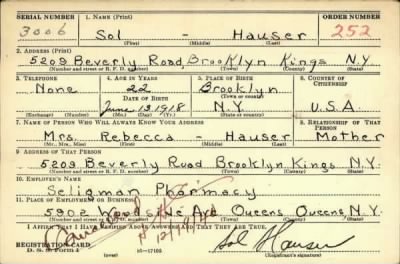 SERIAL NUMBER 1. NAME (Print) ORDER NUMBER
3006 Sol - Hauser 252
(First) (Middle) (Last)
2. ADDRESS (Print)
5209 Beverly Road, Brooklyn Kings N.Y.
(Number and street or R. F. D. number) (Town) (County) (State)
3. TELEPHONE 4. AGE IN YEARS 5. PLACE OF BIRTH 6. COUNTRY OF CITIZENSHIP
None 22 Brooklyn
DATE OF BIRTH (Town or county)
June 13 1918 N.Y. U.S.A
(Exchange) (Number) (Mo.) (Day) (Yr.) (State or country)
7. NAME OF PERSON WHO WILL ALWAYS KNOW YOUR ADDRESS 8. RELATIONSHIP OF THAT PERSON
Mrs. Rebecca - Hauser Mother
(Mr., Mrs., Miss) (First) (Middle) (Last)
9. ADDRESS OF THAT PERSON
5209 Beverly Road Brooklyn Kings N.Y.
(Number and street or R. F. D. number) (Town) (County) (State)
10. EMPLOYER'S NAME
Seligman Pharmacy
11. PLACE OF EMPLOYMENT OR BUSINESS
5902 Woodside Ave Queens Queens N.Y.
(Number and street or R. F. D. number) (Town) (County) (State)
I AFFIRM THAT I HAVE VERIFIED ABOVE ANSWERS AND THAT THEY ARE TRUE.
REGISTRATION CARD
D. S. S. FORM 1 16—17105 Sol Hauser
(Registrant's signature)